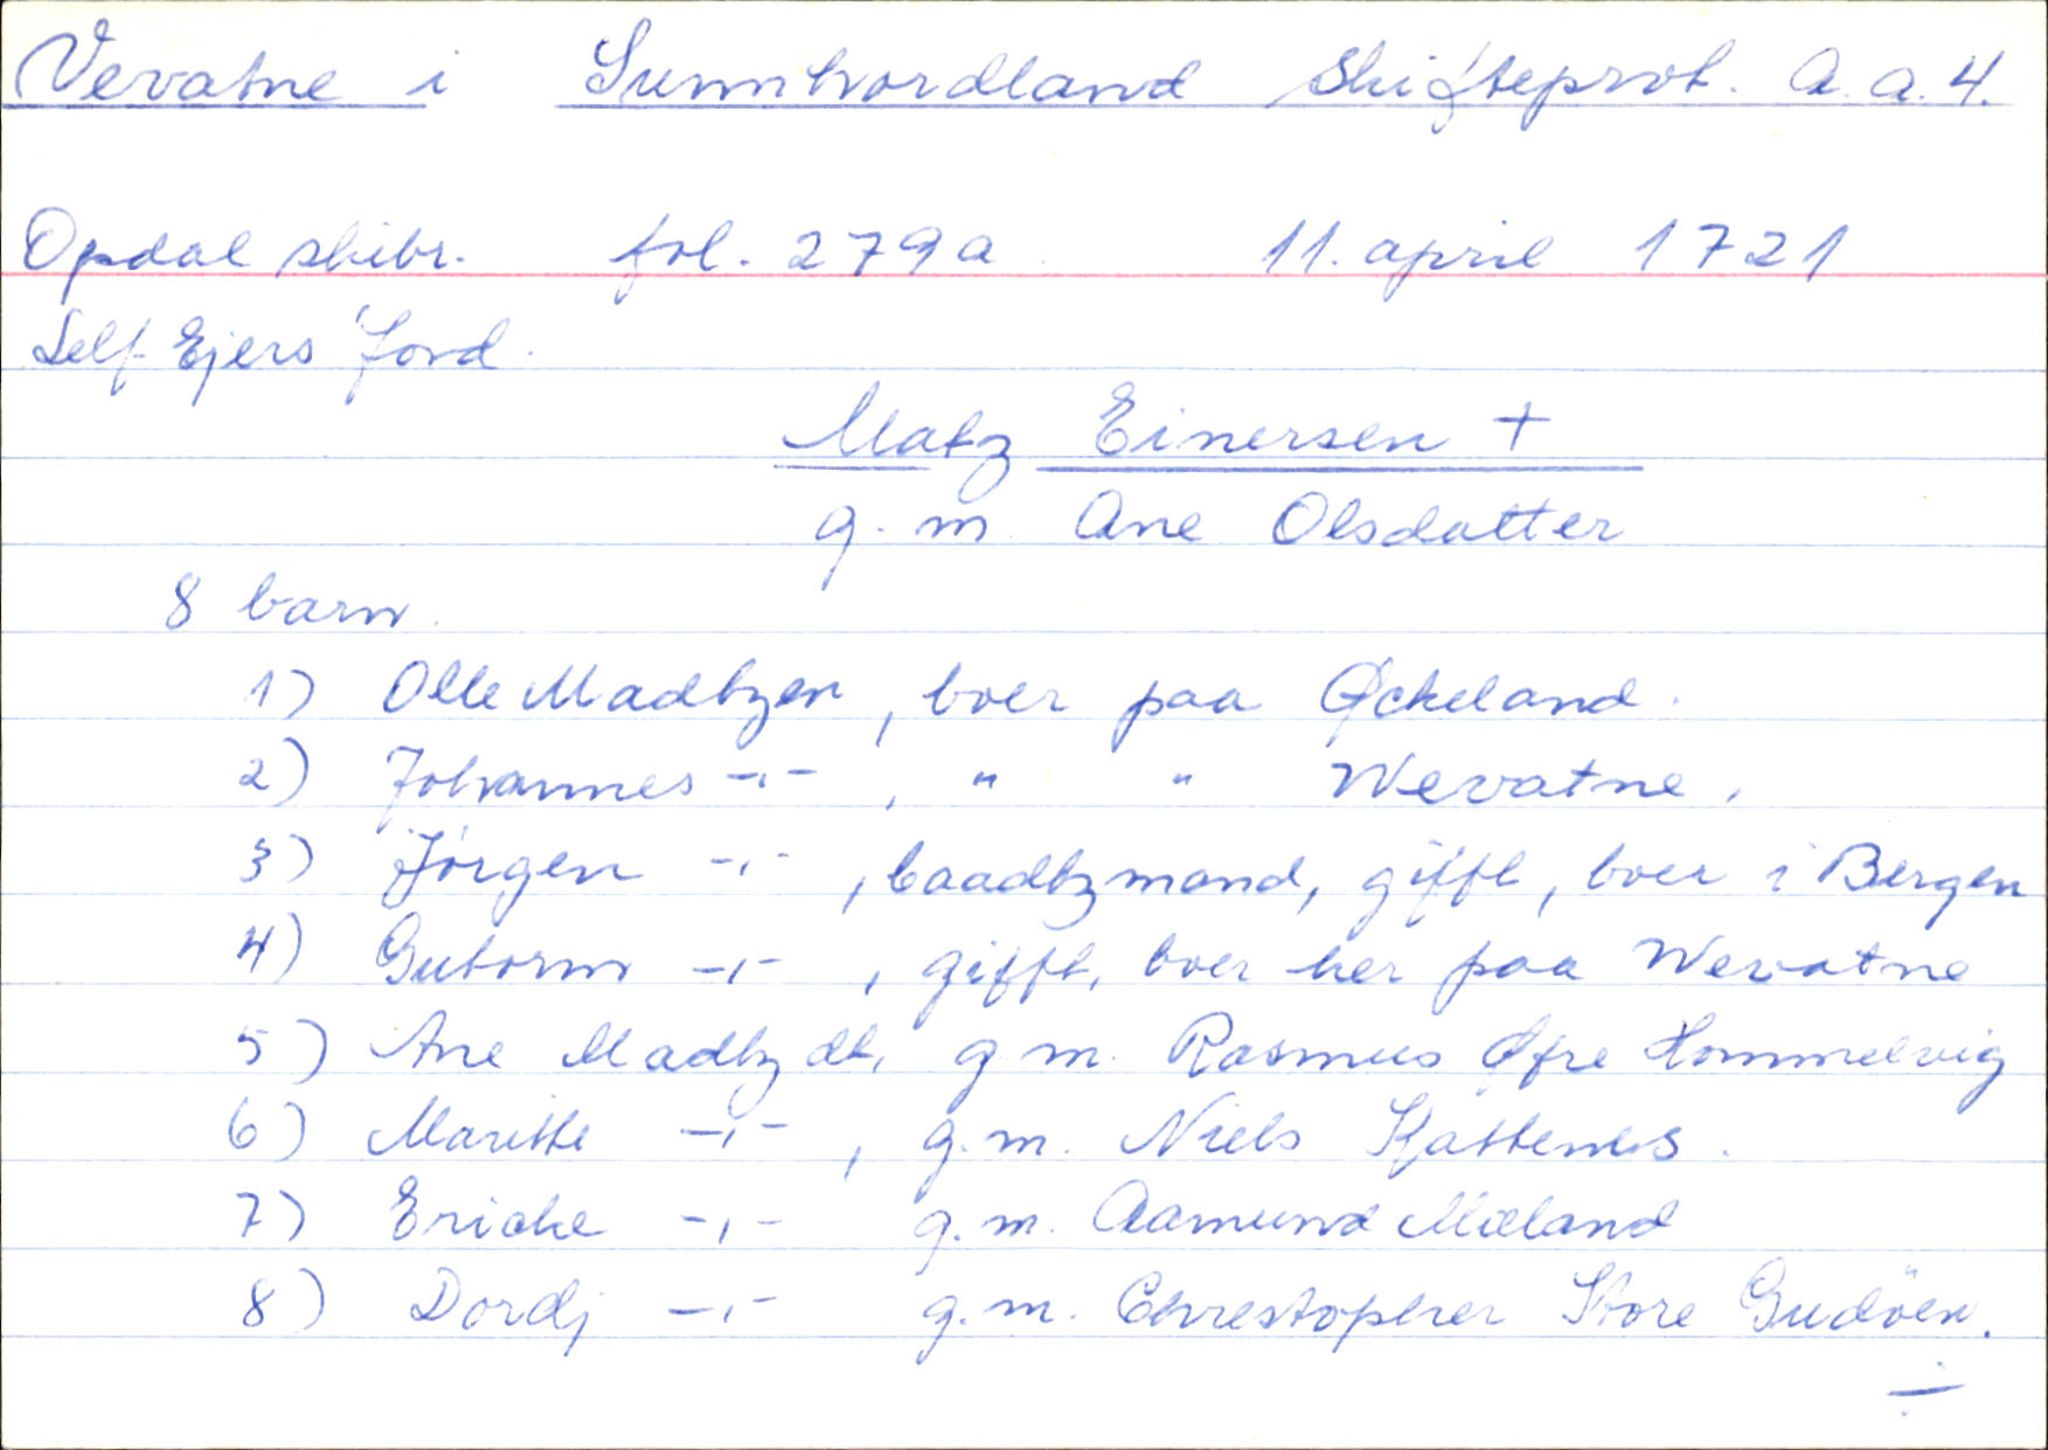 Vevatne i Sunnhordland Skifteprot. A.a.4.
Opdal skibr. fol. 279a 11. april 1721
Self Ejers Jord.
Matz Einersen +
g. m. Ane Olsdatter
8 barn.
1) Olle Madtzen, boer paa Øckeland.
2) Johannes -,-, " " Wevatne.
3) Jørgen -,-, baadtzmand, gifft, boer i Bergen
4) Gutorm -,-, gifft, boer her paa Wevatne
5) Ane Madtzdt, g. m. Rasmus Øfre Hommelvig
6) Maritte -,-, g. m. Niels
7) Ericke -,- g. m. Aamund Mæland
8) Dordj -,- g. m. Chrestopher Store Gudöen.